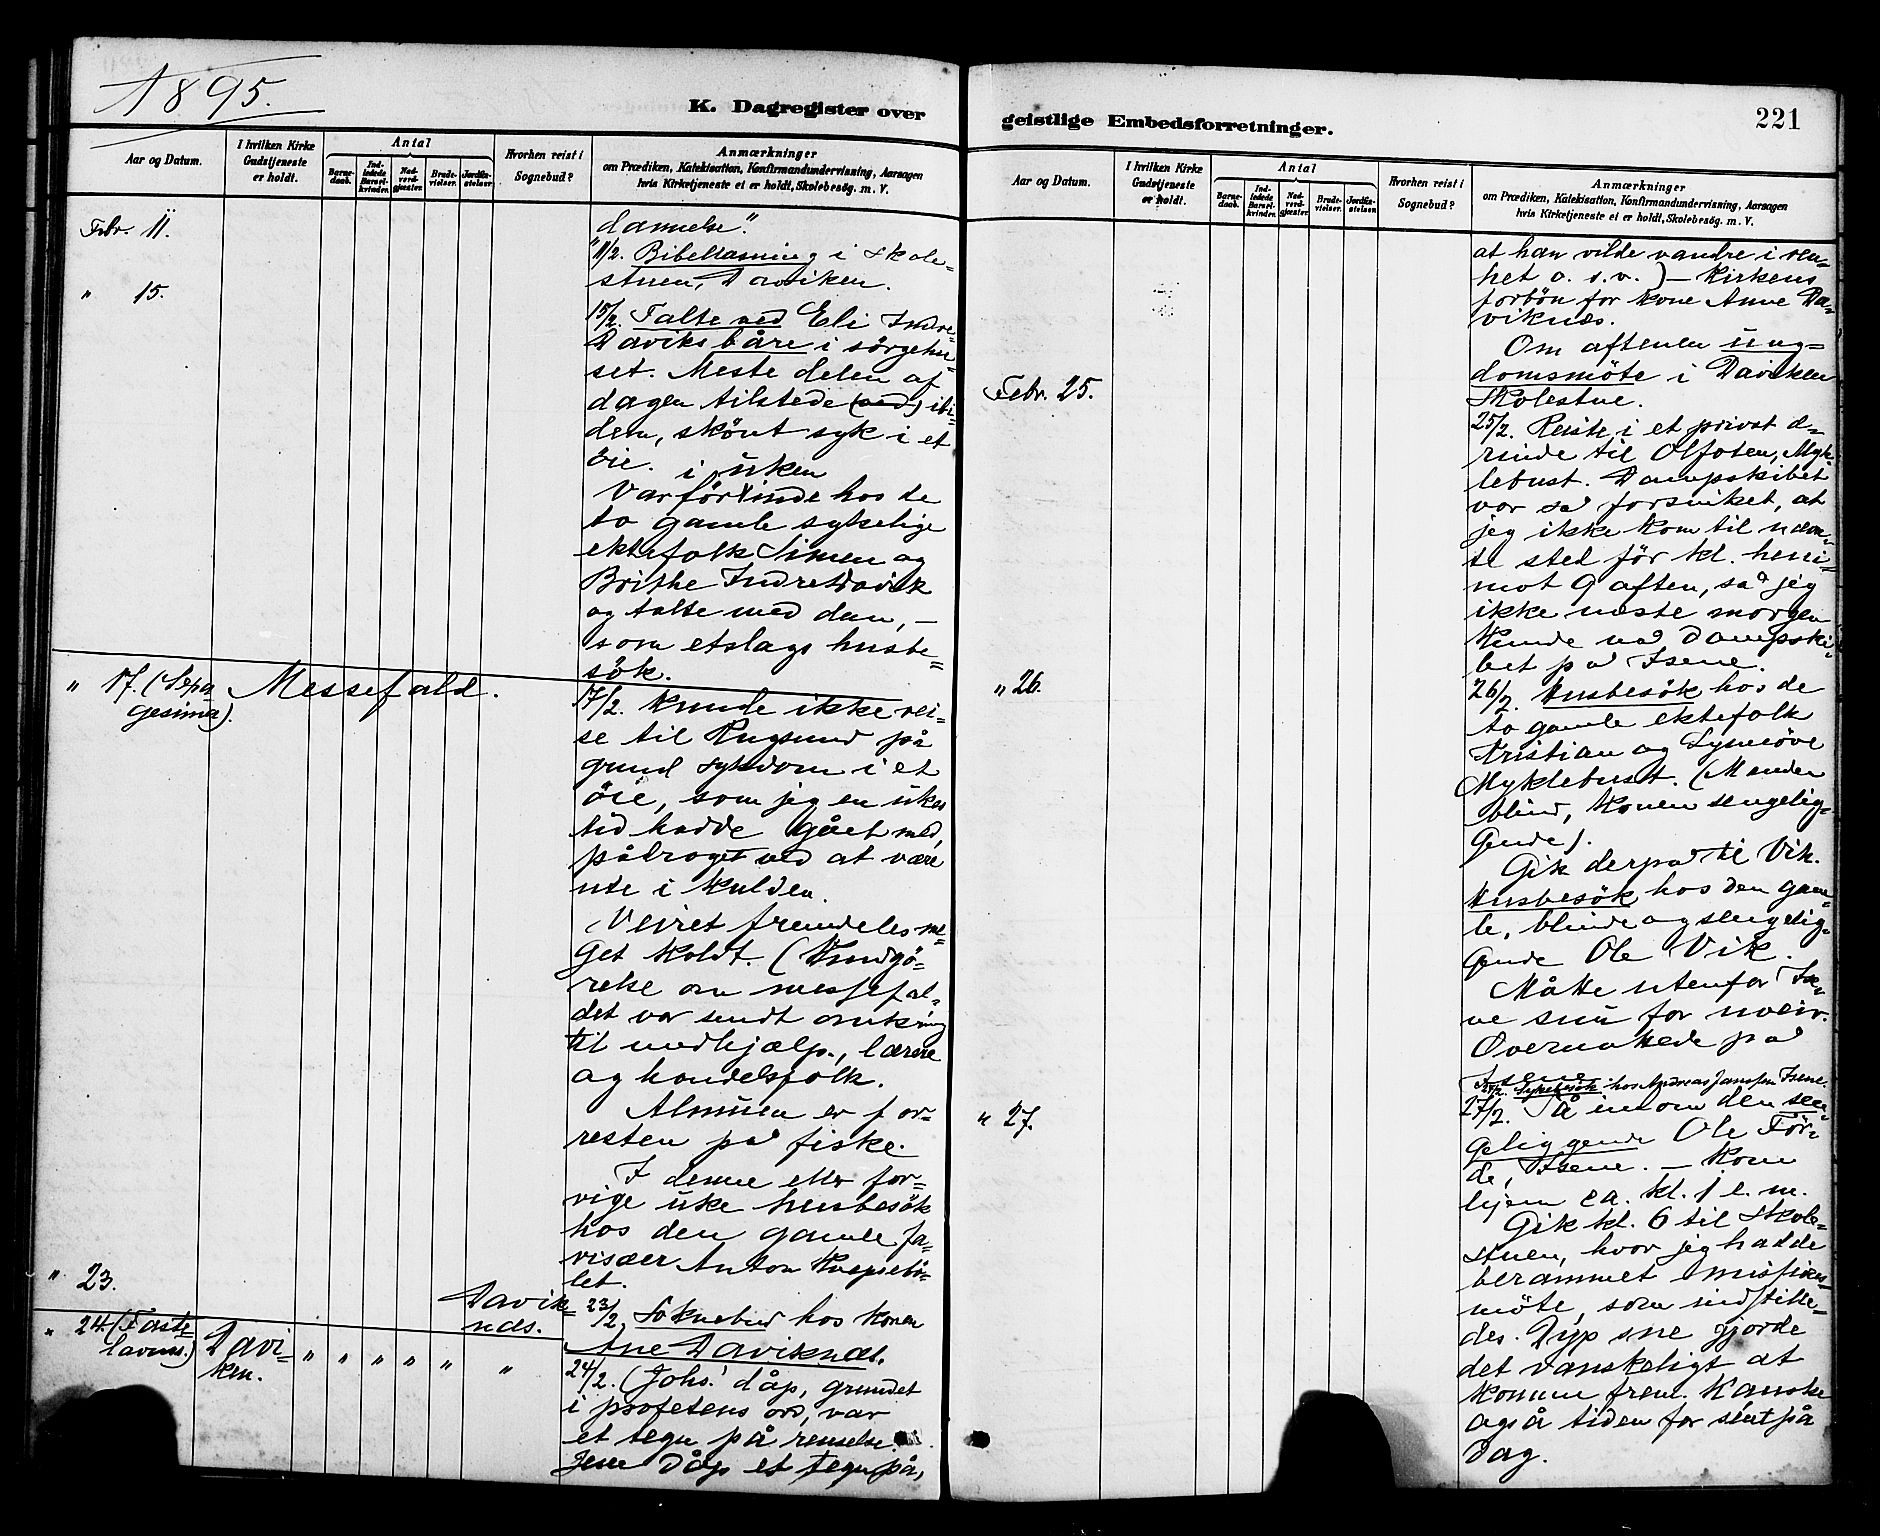 1895.
K. Dagregister over
Aar og Datum.
I hvilken Kirke
Gudstjeneste
er holdt.
Antal
Barne-
daab.
Ind-
ledede
Barsel-
kvinder.
Nad-
verd-
gjæster.
Brude-
vielser.
Jordfæ-
stelser.
Hvorhen reist i
Sognebud?
Anmærkninger
om Prædiken, Katekisation, Konfirmandundervisning, Aarsagen
hvis Kirketjeneste ei er holdt, Skolebesög. m. V.
Febr. 11.
dannelse".
11/2. Bibellæsning i Skole-
stuen, Daviken.
" 15.
15/2. Talte ved Eli Indre-
Daviks båre i sörgehu-
set. Meste delen af
dagen tilstede (ved) ibi-
dem, skönt syk i et
öie.
i uken
Var för inde hos de
to gamle sykelige
ektefolk Simen og
Brithe Indre Davik
og talte med dem, –
som etslags husbe-
sök.
" 17. (Septua
gesima).
Messefald.
17/2. Kunde ikke rei-
se til Rugsund på
grund sykdom i et
öie, som jeg en ukes
tid hadde gået med,
pådraget ved at være
ute i kulden.
Veiret fremdeles me-
get koldt. (Kundgö-
relse om messefal-
det var sendt omkring
til medhjælp., lærere
og handelsfolk.
Almuen er for-
resten på fiske.
I denne eller for-
rige uke husbesök
hos den gamle fa-
risæer Anton
let.
" 23.
Davik-
næs.
23/2. Soknebud hos konen
Ane Daviknæs.
" 24. (Faste-
lavns.)
Davi-
ken.
" " " " " "
24/2. (Johs.' dåp, grundet
i profetens ord, var
et tegn på renselse.
Jesu dåp et tegn på,
geistlige Embedsforretninger.
221
Aar og Datum.
I hvilken Kirke
Gudstjeneste
er holdt.
Antal
Barne-
daab.
Ind-
ledede
Barsel-
kvinder.
Nad-
verd-
gjæster.
Brude-
vielser.
Jordfæ-
stelser.
Hvorhen reist i
Sognebud?
Anmærkninger
om Prædiken, Katekisation, Konfirmandundervisning, Aarsagen
hvis Kirketjeneste ei er holdt, Skolebesög. m. V.
at han vilde vandre i ren-
het o. s. v.) – Kirkens
forbön for kone Anne Da-
viknæs.
Om aftenen ung-
domsmöte i Daviken
Skolestue.
Febr. 25.
25/2. Reiste i et privat æ-
rinde til Olfoten, Myk-
lebust. Dampskibet
var så forsinket, at
jeg ikke kom til nævn-
te sted för kl. heni-
mot 9 aften, så jeg
ikke næste morgen
kunde nå dampski-
bet på Isene.
" 26.
26/2. Husbesök hos de
to gamle ektefolk
Kristian og Synnöve
Myklebust. (Manden
blind, konen sengelig-
gende).
Gik derpå til Vik.
Husbesök hos den gam-
le, blinde og sengelig-
gende Ole Vik.
Måtte utenfor Ise-
ne snu for uveir.
Overnattede på
Isene
26/2. Sykebesök hos Andreas Janssen Isene.
" 27.
27/2. Så indom den sen-
geliggende Ole För-
de, Isene. – Kom
hjem ca. kl. 1 e. m.
Gik kl. 6 til Skole-
stuen, hvor jeg hadde
berammet missions-
möte, som indstille-
des. Dyp sne gjorde
det vanskeligt at
komme frem. Kanske
også tiden for sent på
dag.